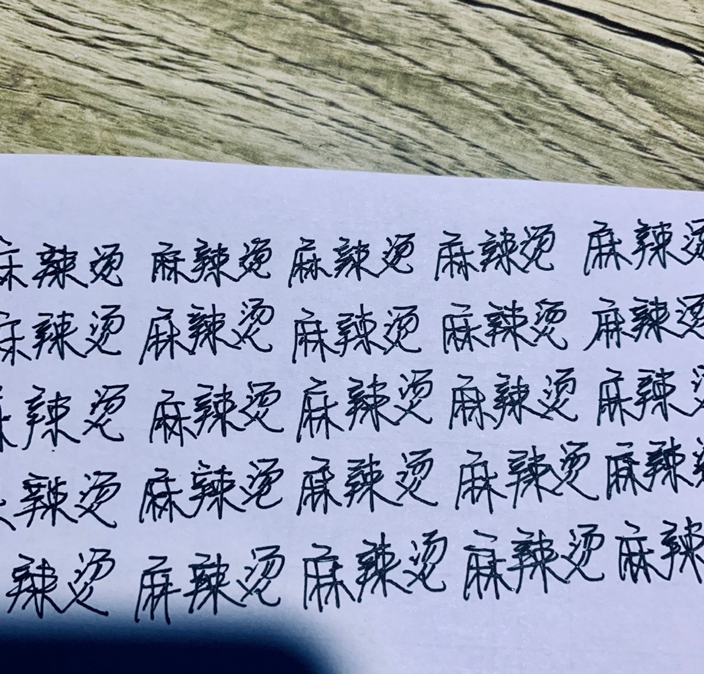 麻辣烫 麻辣烫 麻辣烫 麻辣烫 麻辣烫
麻辣烫 麻辣烫 麻辣烫 麻辣烫 麻辣烫
麻辣烫 麻辣烫 麻辣烫 麻辣烫 麻辣烫
辣烫 麻辣烫 麻辣烫 麻辣烫 麻辣烫
辣烫 麻辣烫 麻辣烫 麻辣烫 麻辣